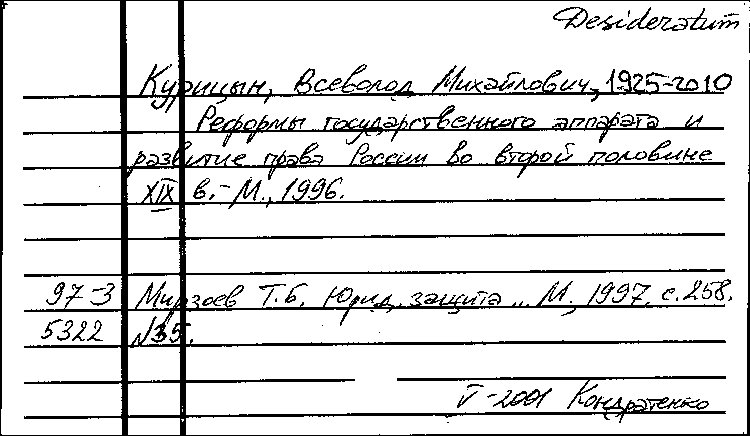 Desideratum
Курицын, Всеволод Михайлович, 1925-2010
Реформы государственного аппарата и
развитие права России во второй половине
XIX в. - М., 1996.
97-3 Мирзоев Т.Б. Юрид. защита ... М., 1997, с. 258.
5322 №35.
V-2001 Кондратенко